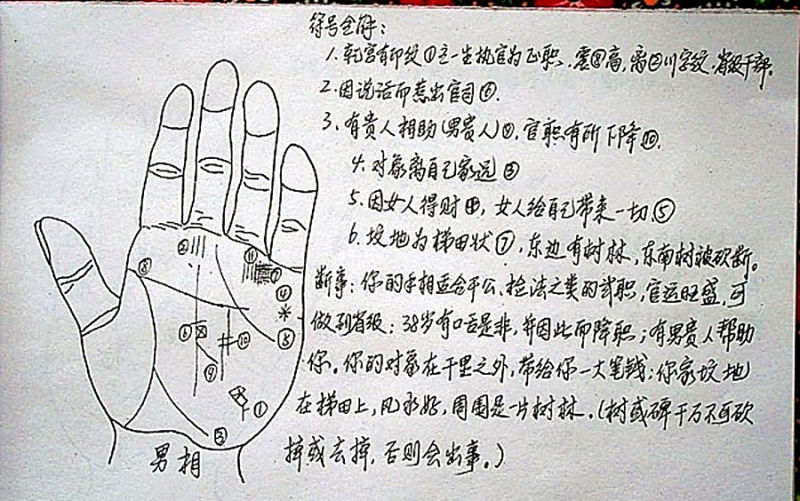 符号全解:
1.乾宫有印纹①主一生执官为正职,震⑧高,离②川字纹,省级干部。
2.因说话而惹出官司⑥.
3.有贵人相助(男贵人)⑨,官职有所下降⑩.
4.对象离自己家远③
5.因女人得财④,女人给自己带来一切.⑤
6.坟地为梯田状⑦,东边有树林,东南树被砍断。
断事:你的手相适合干公、检法之类的武职,官运旺盛,可
做到省级:38岁有口舌是非,并因此而降职;有男贵人帮助
你。你的对象在千里之外,带给你一大笔钱;你家坟地
在梯田上,风水好,周围是一片树林.(树或碑千万不可砍
掉或去掉,否则会出事。)
②
⑪
⑧
④
⑥
⑩
⑧
⑨
①
③
男相